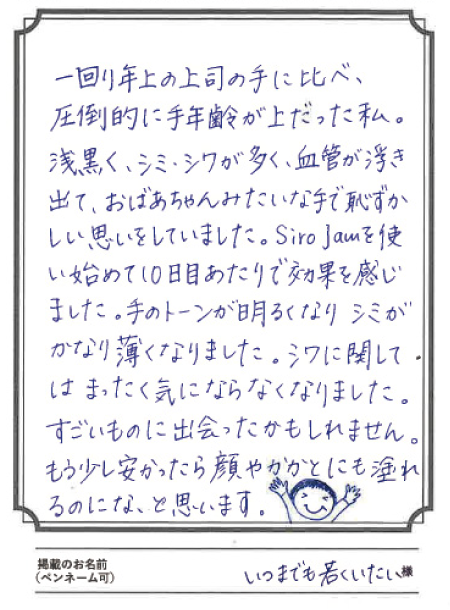 一回り年上の上司の手に比べ、
圧倒的に手年齢が上だった私。
浅黒く、シミ・シワが多く、血管が浮き
出て、おばあちゃんみたいな手で恥ずか
しい思いをしていました。Siro Jamを使
い始めて10日目あたりで効果を感じ
ました。手のトーンが明るくなり シミが
かなり薄くなりました。シワに関して
は まったく気にならなくなりました。
すごいものに出会ったかもしれません。
もう少し安かったら顔やかかとにも塗れ
るのにな、と思います。
掲載のお名前
(ペンネーム可)
いつまでも若くいたい様